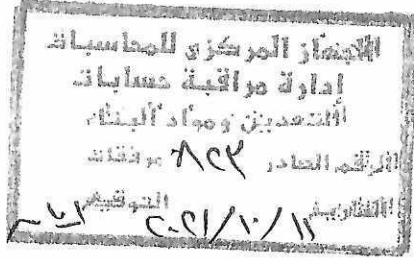 الجهاز المركزي للمحاسبات
إدارة مراقبة حسابات
التعدين ومواد البناء
الرقم الصادر ٨٢٣ مرفقات
التاريخ ٢٠٢١/١٠/١٢ التوقيع